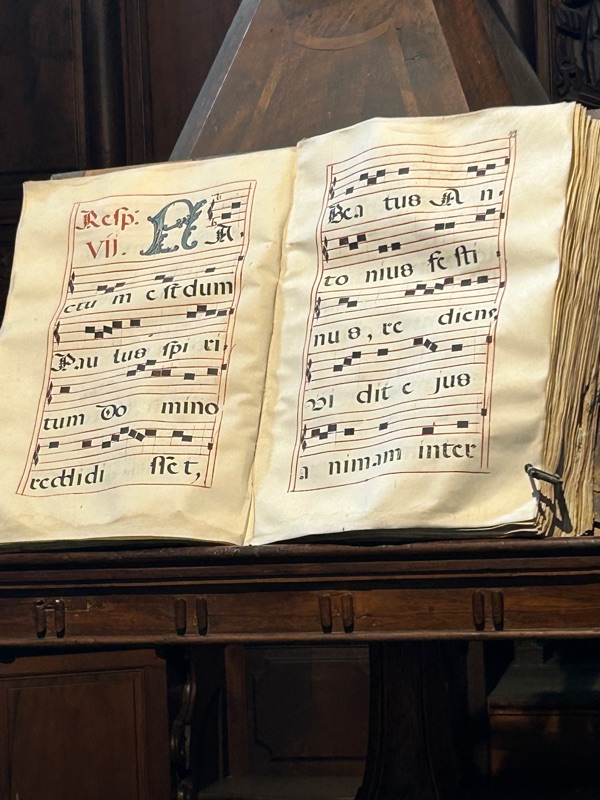 Reſp: F
VII. A,
ctu m e ſt dum
Pau lus ſpi ri,
tum Do mino
reddidi ſſe t,
Bea tus A n,
to nius fe ſti
nu s, re diens
vi dit e jus
a nimam inter